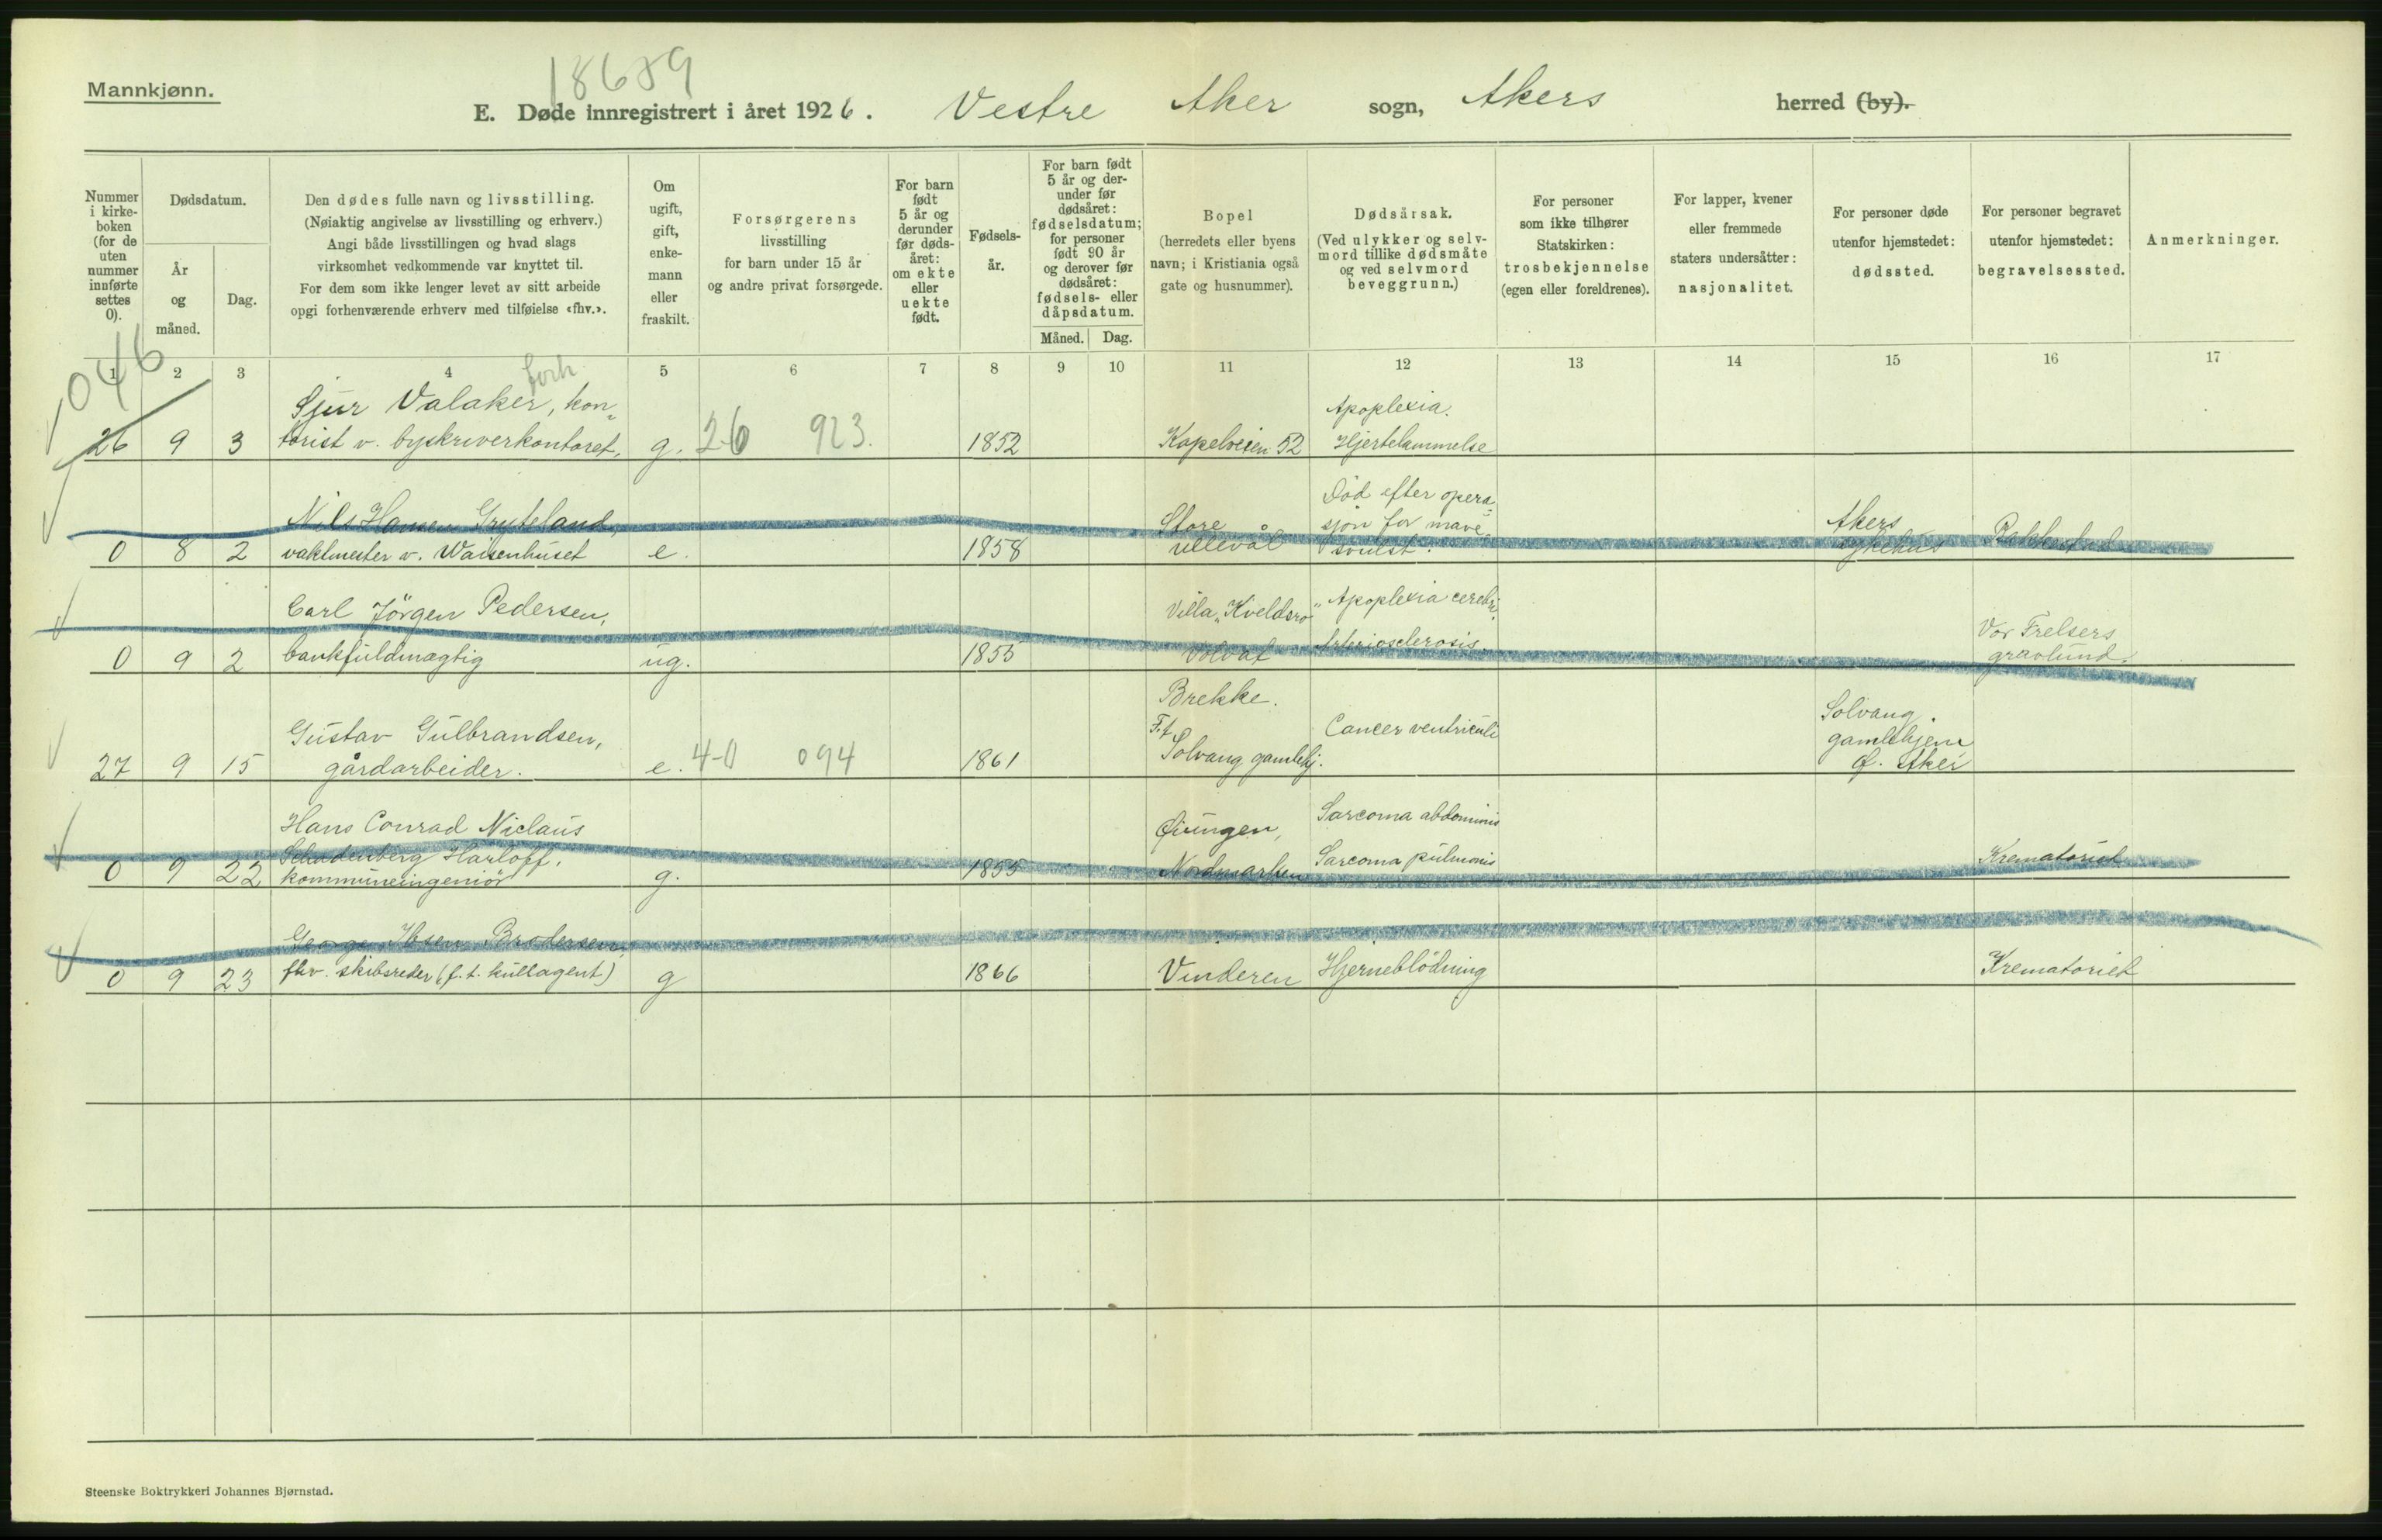 Mannkjønn.
18689
E. Døde innregistrert i året 1926. Vestre Aker sogn, Akers herred (by).
Nummer i kirke-boken (for de uten nummer innførte settes 0).
Dødsdatum.
År og måned.
Dag.
Den dødes fulle navn og livsstilling.
(Nøiaktig angivelse av livsstilling og erhverv.)
Angi både livsstillingen og hvad slags
virksomhet vedkommende var knyttet til.
For dem som ikke lenger levet av sitt arbeide
opgi forhenværende erhverv med tilføielse «fhv.».
Om ugift, gift, enke-mann eller fraskilt.
Forsørgerens
livsstilling
for barn under 15 år
og andre privat forsørgede.
For barn født 5 år og derunder før døds-året: om ekte eller uekte født.
Fødsels-år.
For barn født 5 år og der-under før dødsåret: fødselsdatum; for personer født 90 år og derover før dødsåret: fødsels- eller dåpsdatum.
Måned. Dag.
Bopel
(herredets eller byens
navn; i Kristiania også
gate og husnummer).
Dødsårsak.
(Ved ulykker og selv-
mord tillike dødsmåte
og ved selvmord
beveggrunn.)
For personer
som ikke tilhører
Statskirken:
trosbekjennelse
(egen eller foreldrenes).
For lapper, kvener
eller fremmede
staters undersåtter:
nasjonalitet.
For personer døde
utenfor hjemstedet:
dødssted.
For personer begravet
utenfor hjemstedet:
begravelsessted.
Anmerkninger.
1 2 3 4 5 6 7 8 9 10 11 12 13 14 15 16 17
1046
forh.
Sjur Valaker, kon-
Apoplexia.
26 9 3 torist v. byskriverkontoret, g. 26 923. 1852 Kapelveien 52 Hjertelammelse
Død efter opera-
Nils Hansen Gryteland, Store sjon for mave- Akers
0 8 2 vaktmester v. Waisenhuset e. 1858 Ullevål svulst. sykehus Rakkestad
Carl Jörgen Pedersen, Villa „Kveldsro" Apoplexia cerebri. Vor Frelsers
0 9 2 bankfuldmægtig ug. 1855 Volvat Arteriosclerosis gravlund.
Brekke.
Gustav Gulbrandsen, F.t. Cancer ventriculi Solvang
gamlehjem
27 9 15 gårdarbeider. e. 40 094 1861 Solvang gamlehj. Ø. Aker
Hans Conrad Niclaus Øiungen, Sarcoma abdominis
Schadenberg Harloff, Sarcoma pulmonis
0 9 22 kommuneingeniør g. 1855 Nordmarken Krematoriet
George Ibsen Brodersen,
0 9 23 fhv. skibsreder (f.t. kullagent) g 1866 Vinderen Hjerneblödning Krematoriet
Steenske Boktrykkeri Johannes Bjørnstad.